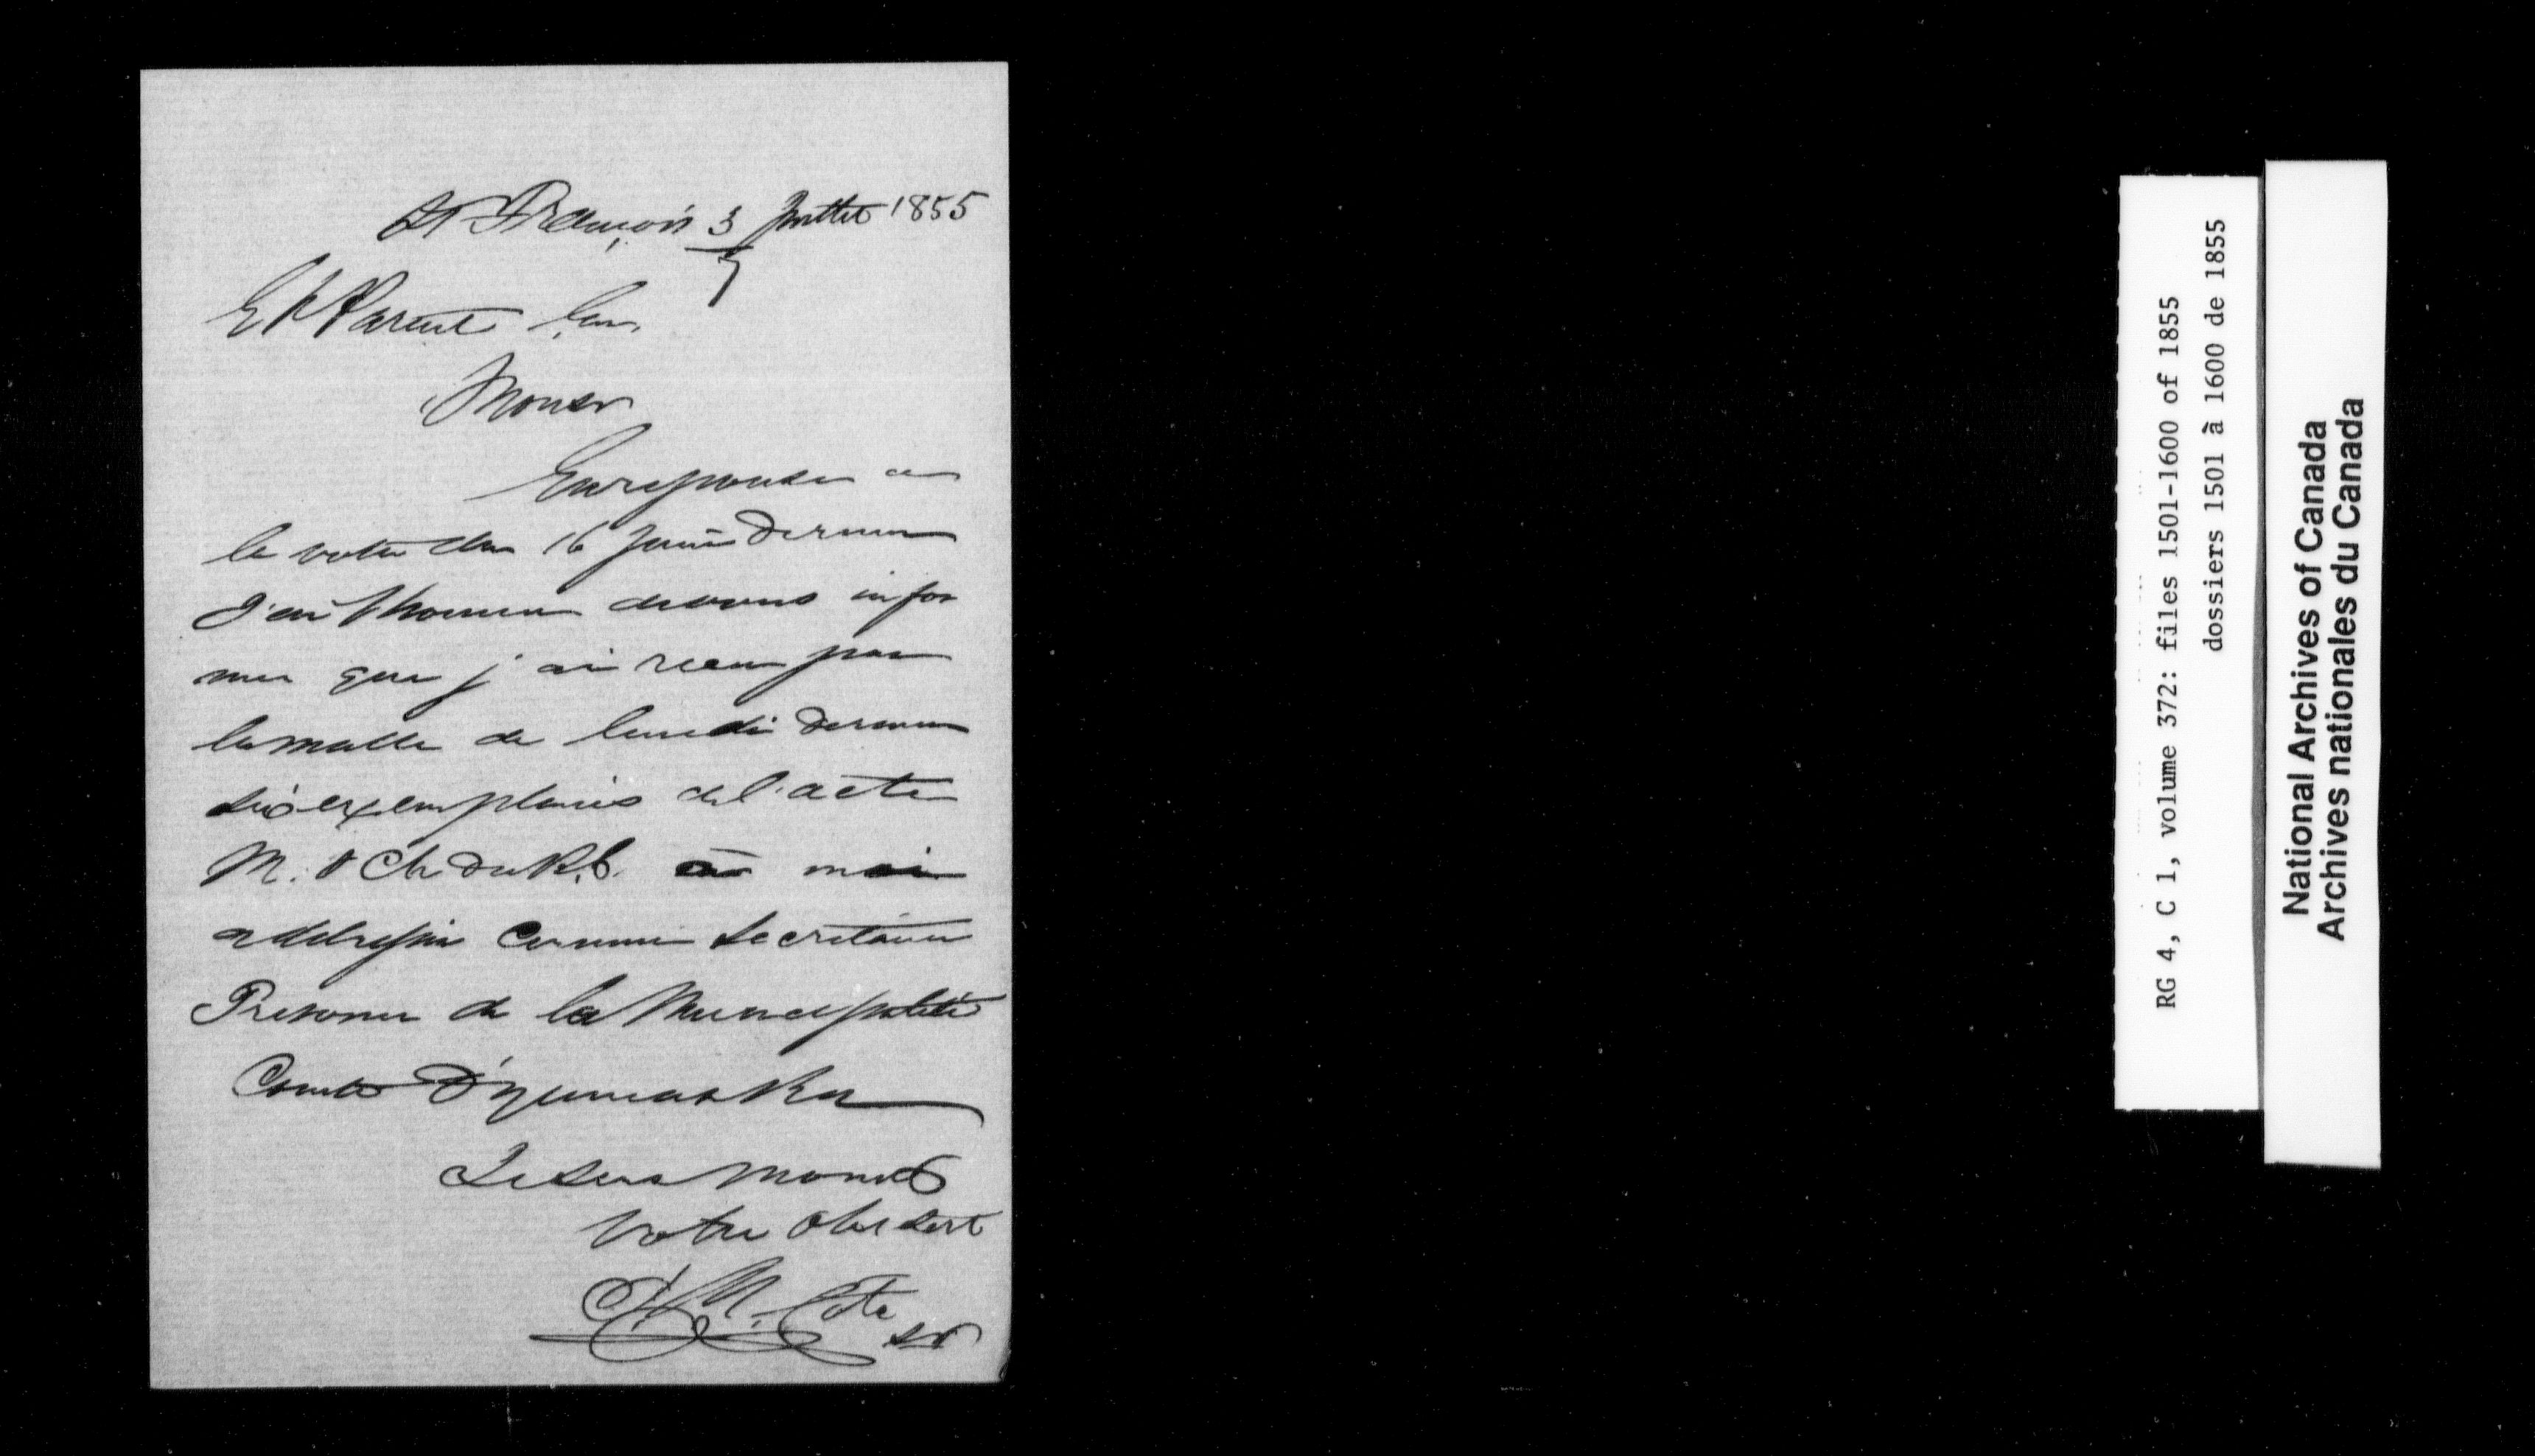 St François 3 Juillet 1855
7
E Parent
Monsr
En reponse a
la votre du 16 Juin Dernier
J'ai l'honneur de vous infor
mer que j'ai recu par
la malle de lundi Dernier
dix exemplaires de l'acte
M. & Ch du B.C. à moi
addressés comme Secretaire
Tresorier de la Municipalité
Comté D'Yamaska
Je suis Monsr
Votre Obt Sert
Côté
ST
RG 4, C 1, volume 372: files 1501-1600 of 1855
dossiers 1501 à 1600 de 1855
National Archives of Canada
Archives nationales du Canada